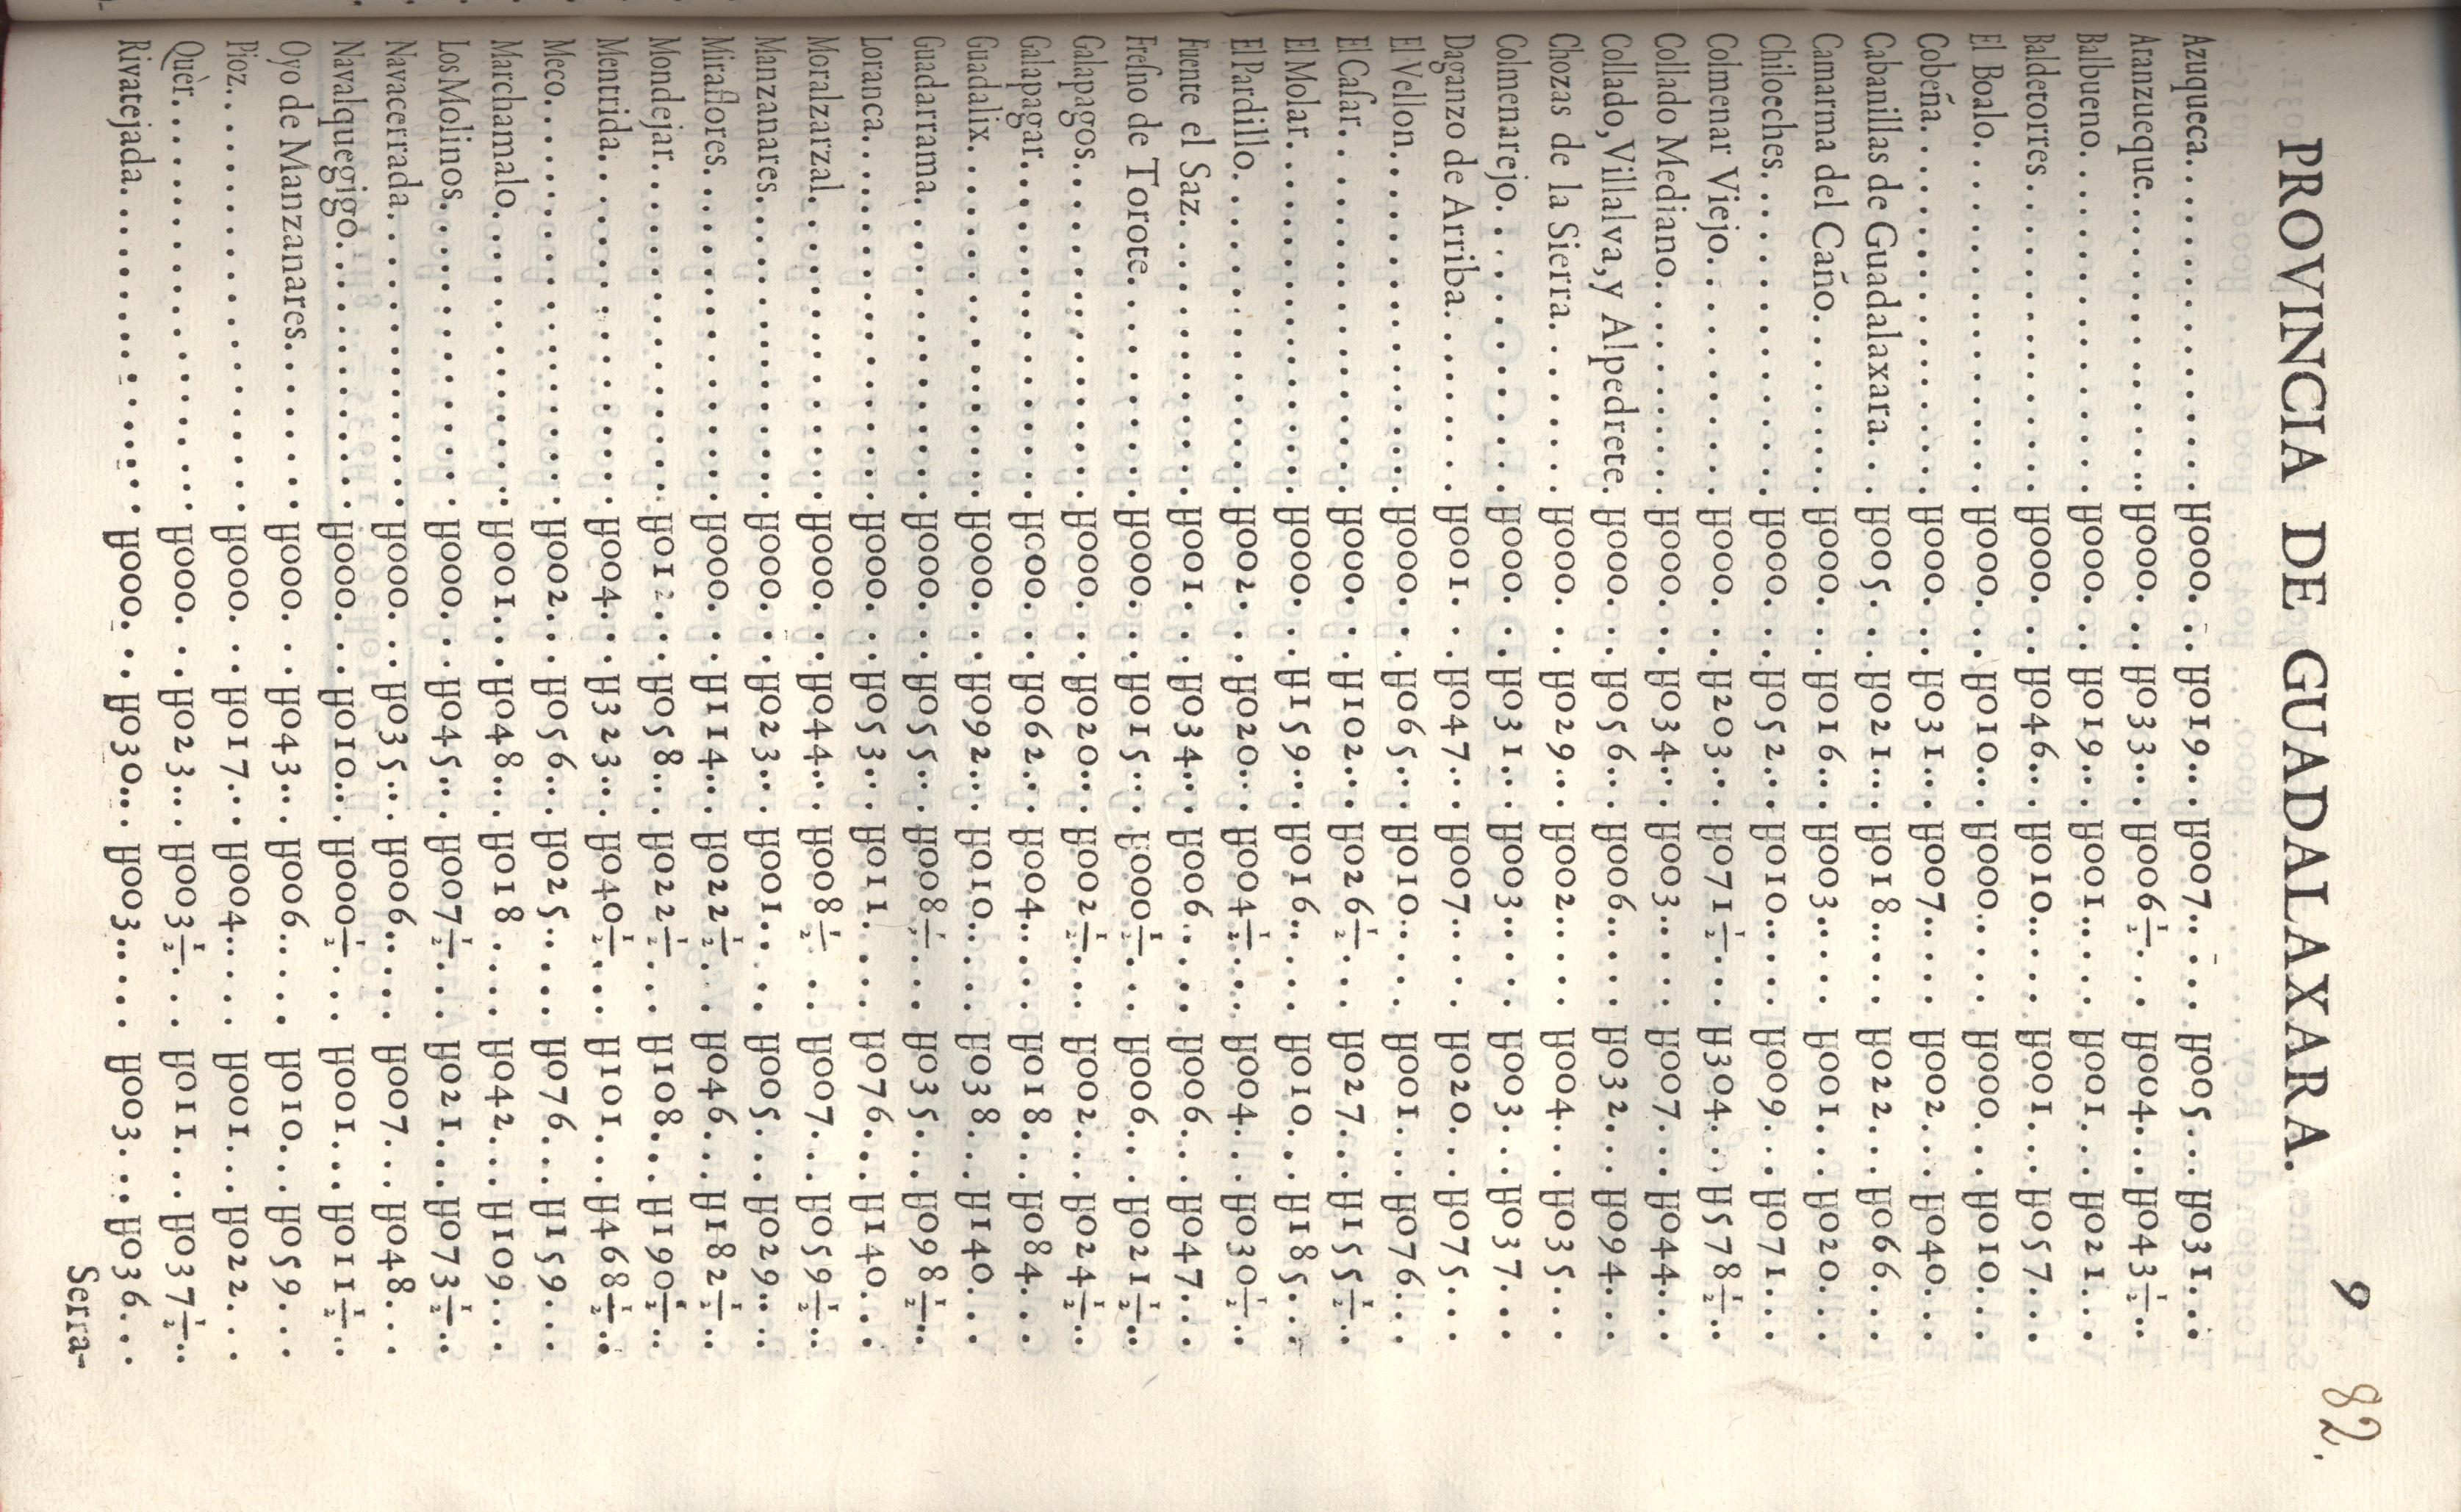 9 82.
PROVINCIA DE GUADALAXARA.
Azuqueca. . . U000. . . U019. . . U007. . . U005. . . U031. . .
Aranzueque. . . U000. . . U033. . . U006½. . . U004. . . U043½. .
Balbueno. . . U000. . . U019. . . U001. . . U001. . . U021. . .
Baldetorres. . . U000. . . U046. . . U010. . . U001. . . U057. . .
El Boalo. . . U000. . . U010. . . U000. . . U000. . . U010. . .
Cobeña. . . U000. . . U031. . . U007. . . U002. . . U040. . .
Cabanillas de Guadalaxara. . . U005. . . U021. . . U018. . . U022. . . U066. . .
Camarma del Caño. . . U000. . . U016. . . U003. . . U001. . . U020. . .
Chiloeches. . . U000. . . U052. . . U010. . . U009. . . U071. . .
Colmenar Viejo. . . U000. . . U203. . . U071½. . . U304. . . U578½. .
Collado Mediano. . . U000. . . U034. . . U003. . . U007. . . U044. . .
Collado, Villalva, y Alpedrete. U000. . . U056. . . U006. . . U032. . . U094. . .
Chozas de la Sierra. . . U000. . . U029. . . U002. . . U004. . . U035. . .
Colmenarejo. . . U000. . . U031. . . U003. . . U003. . . U037. . .
Daganzo de Arriba. . . U001. . . U047. . . U007. . . U020. . . U075. . .
El Vellon. . . U000. . . U065. . . U010. . . U001. . . U076. . .
El Caſar. . . U000. . . U102. . . U026½. . . U027. . . U155½. .
El Molar. . . U000. . . U159. . . U016. . . U010. . . U185. . .
El Pardillo. . . U002. . . U020. . . U004½. . . U004. . . U030½. .
Fuente el Saz. . . U001. . . U034. . . U006. . . U006. . . U047. . .
Freſno de Torote. . . U000. . . U015. . . U000½. . . U006. . . U021½. .
Galapagos. . . U000. . . U020. . . U002½. . . U002. . . U024½. .
Galapagar. . . U000. . . U062. . . U004. . . U018. . . U084. . .
Guadalix. . . U000. . . U092. . . U010. . . U038. . . U140. . .
Guadarrama. . . U000. . . U055. . . U008½. . . U035. . . U098½. .
Loranca. . . U000. . . U053. . . U011. . . U076. . . U140. . .
Moralzarzal. . . U000. . . U044. . . U008½. . . U007. . . U059½. .
Manzanares. . . U000. . . U023. . . U001. . . U005. . . U029. . .
Miraflores. . . U000. . . U114. . . U022½. . . U046. . . U182½. .
Mondejar. . . U012. . . U058. . . U022½. . . U108. . . U190½. .
Mentrida. . . U004. . . U323. . . U040½. . . U101. . . U468½. .
Meco. . . U002. . . U056. . . U025. . . U076. . . U159. . .
Marchamalo. . . U001. . . U048. . . U018. . . U042. . . U109. . .
Los Molinos. . . U000. . . U045. . . U007½. . . U021. . . U073½. .
Navacerrada. . . U000. . . U035. . . U006. . . U007. . . U048. . .
Navalquegigo. . . U000. . . U010. . . U000½. . . U001. . . U011½. .
Oyo de Manzanares. . . U000. . . U043. . . U006. . . U010. . . U059. . .
Pioz. . . U000. . . U017. . . U004. . . U001. . . U022. . .
Quèr. . . U000. . . U023. . . U003½. . . U011. . . U037½. .
Rivatejada. . . U000. . . U030. . . U003. . . U003. . . U036. . .
Serra-